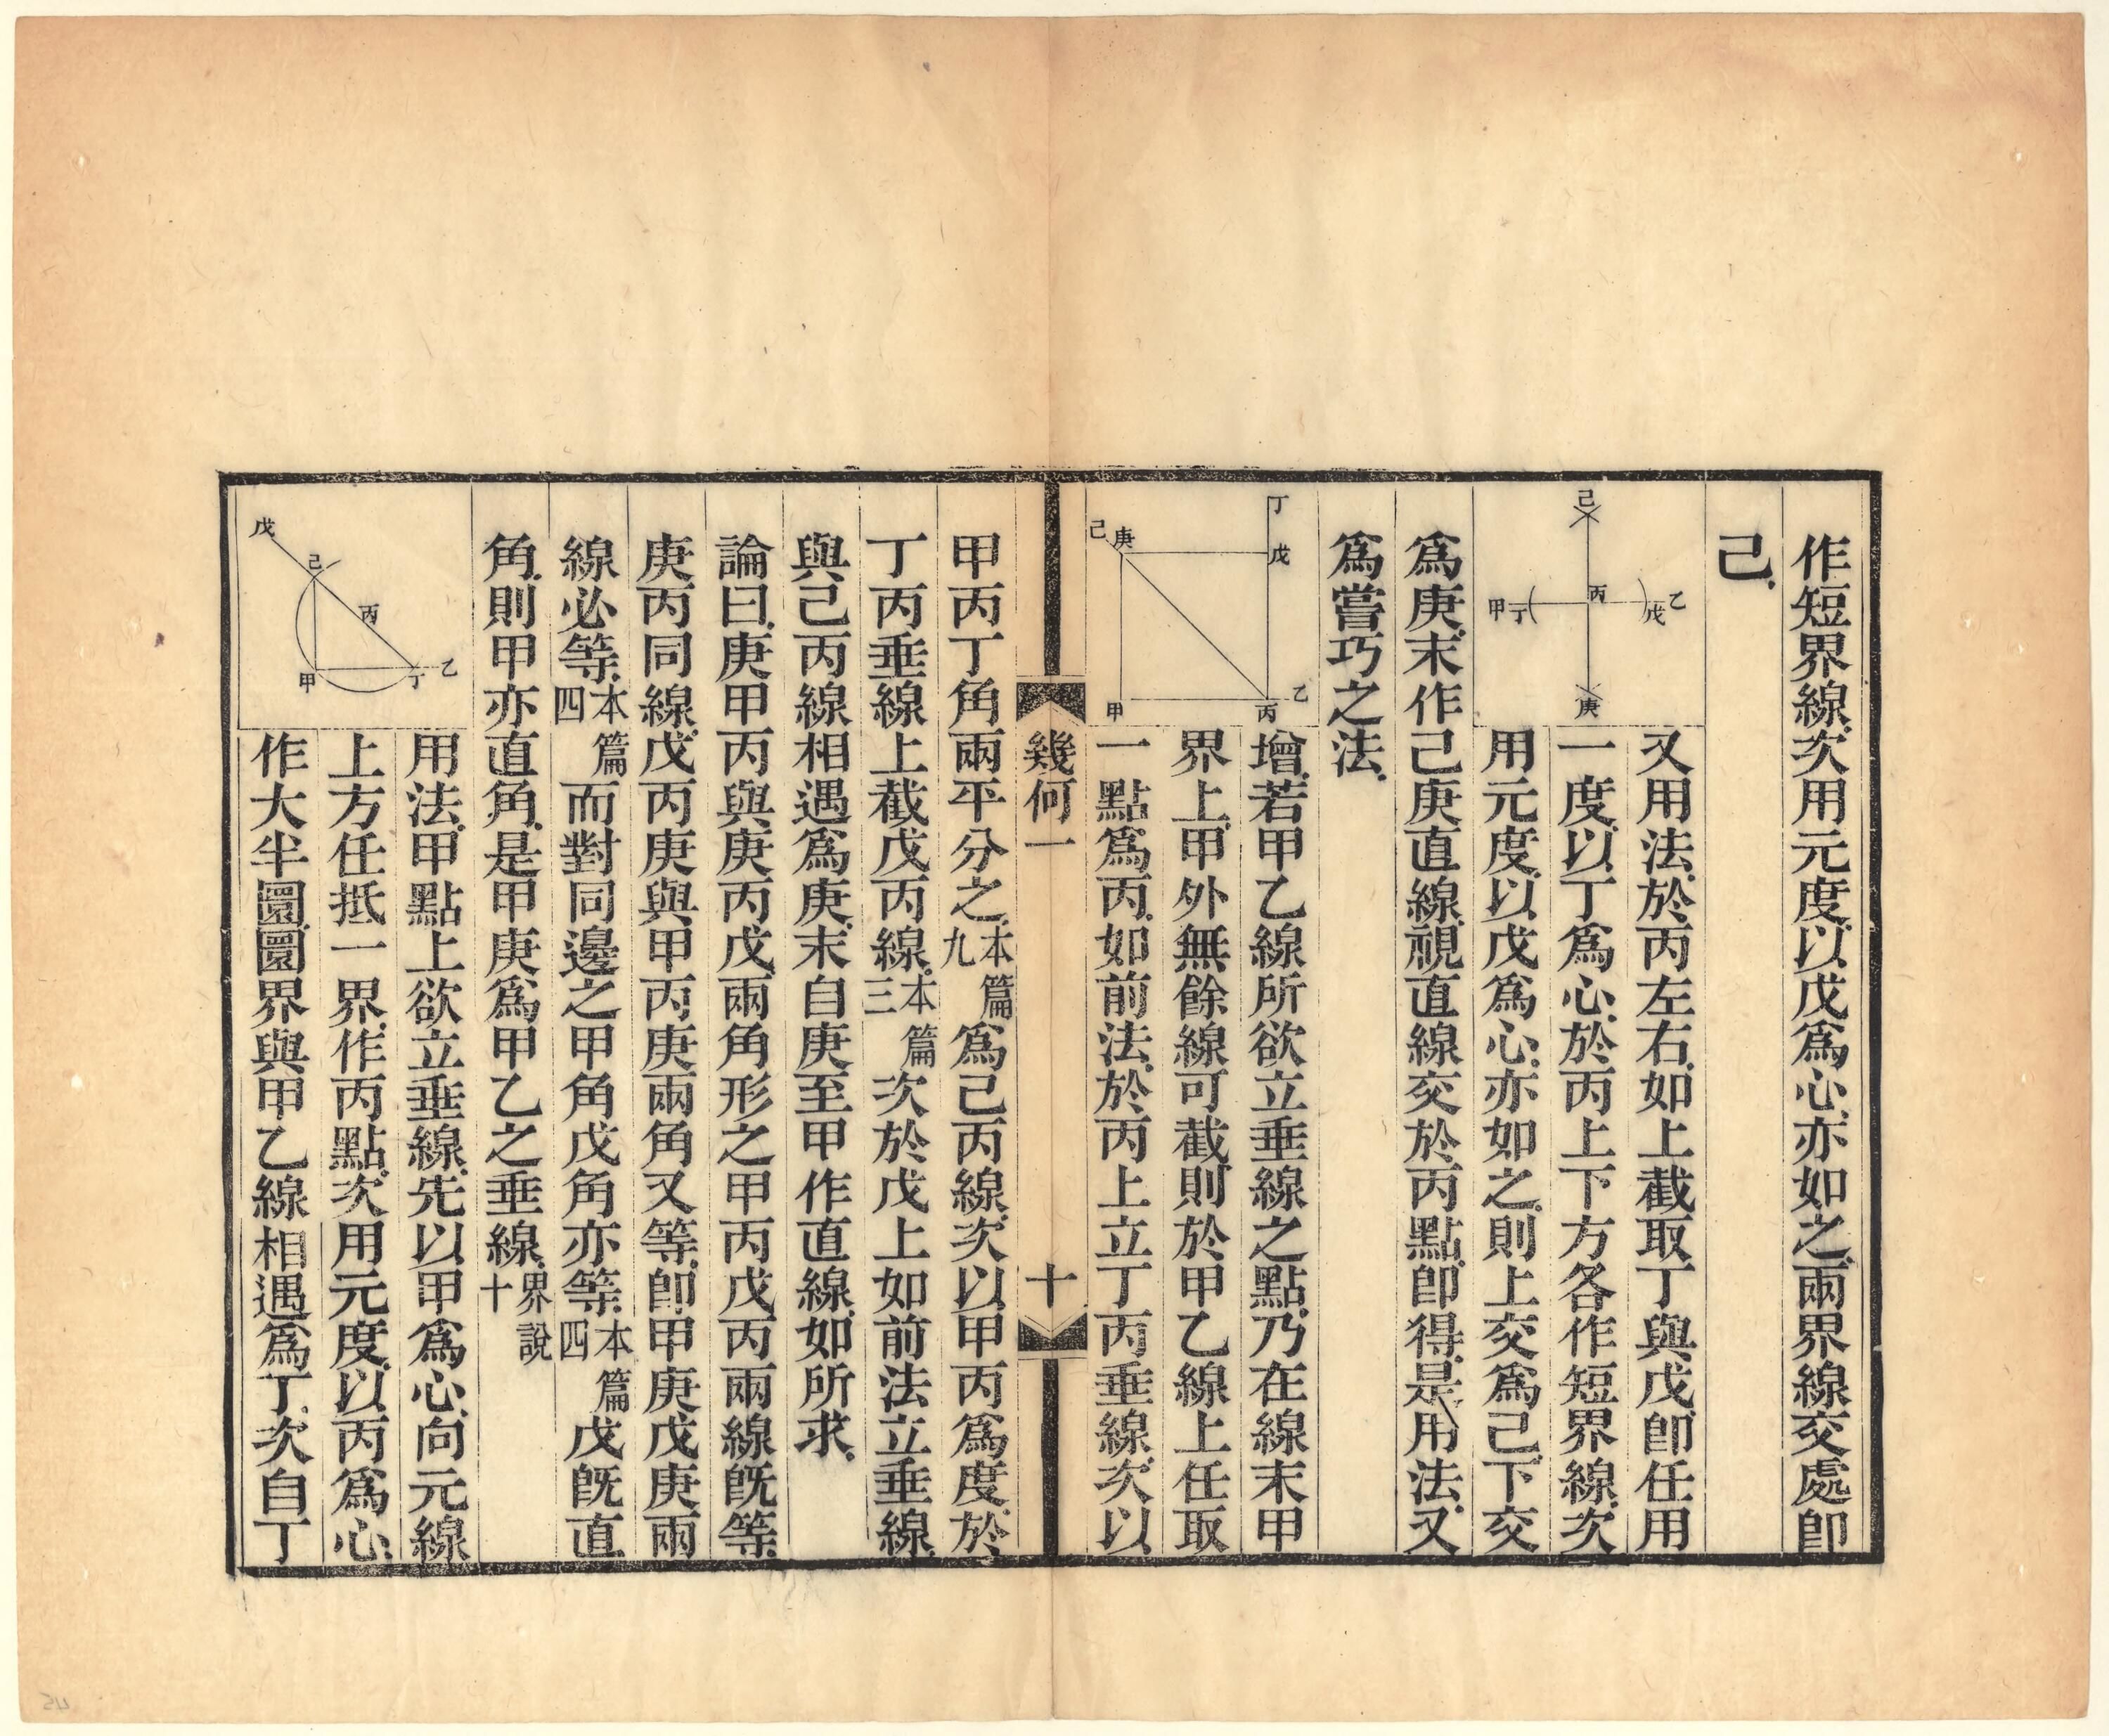 作短界線次用元度以戊爲心亦如之兩界線交處卽
己
己
甲丁
丙
戊乙
庚
又用法於丙左右如上截取丁與戊卽任用
一度以丁爲心於丙上下方各作短界線次
用元度以戊爲心亦如之則上交爲己下交
爲庚末作己庚直線視直線交於丙點卽得是用法又
爲嘗巧之法
丁
己庚
戊
甲
丙
乙
增若甲乙線所欲立垂線之點乃在線末甲
界上甲外無餘線可截則於甲乙線上任取
一點爲丙如前法於丙上立丁丙垂線次以
幾何一
十
甲丙丁角兩平分之本篇九爲己丙線次以甲丙爲度於
丁丙垂線上截戊丙線本篇三次於戊上如前法立垂線
與己丙線相遇爲庚末自庚至甲作直線如所求
論曰庚甲丙與庚丙戊兩角形之甲丙戊丙兩線旣等
庚丙同線戊丙庚與甲丙庚兩角又等卽甲庚戊庚兩
線必等本篇四而對同邊之甲角戊角亦等本篇四戊旣直
角則甲亦直角是甲庚爲甲乙之垂線界說十
戊
己
丙
甲
丁
乙
用法甲點上欲立垂線先以甲爲心向元線
上方任抵一界作丙點次用元度以丙爲心
作大半圜圜界與甲乙線相遇爲丁次自丁